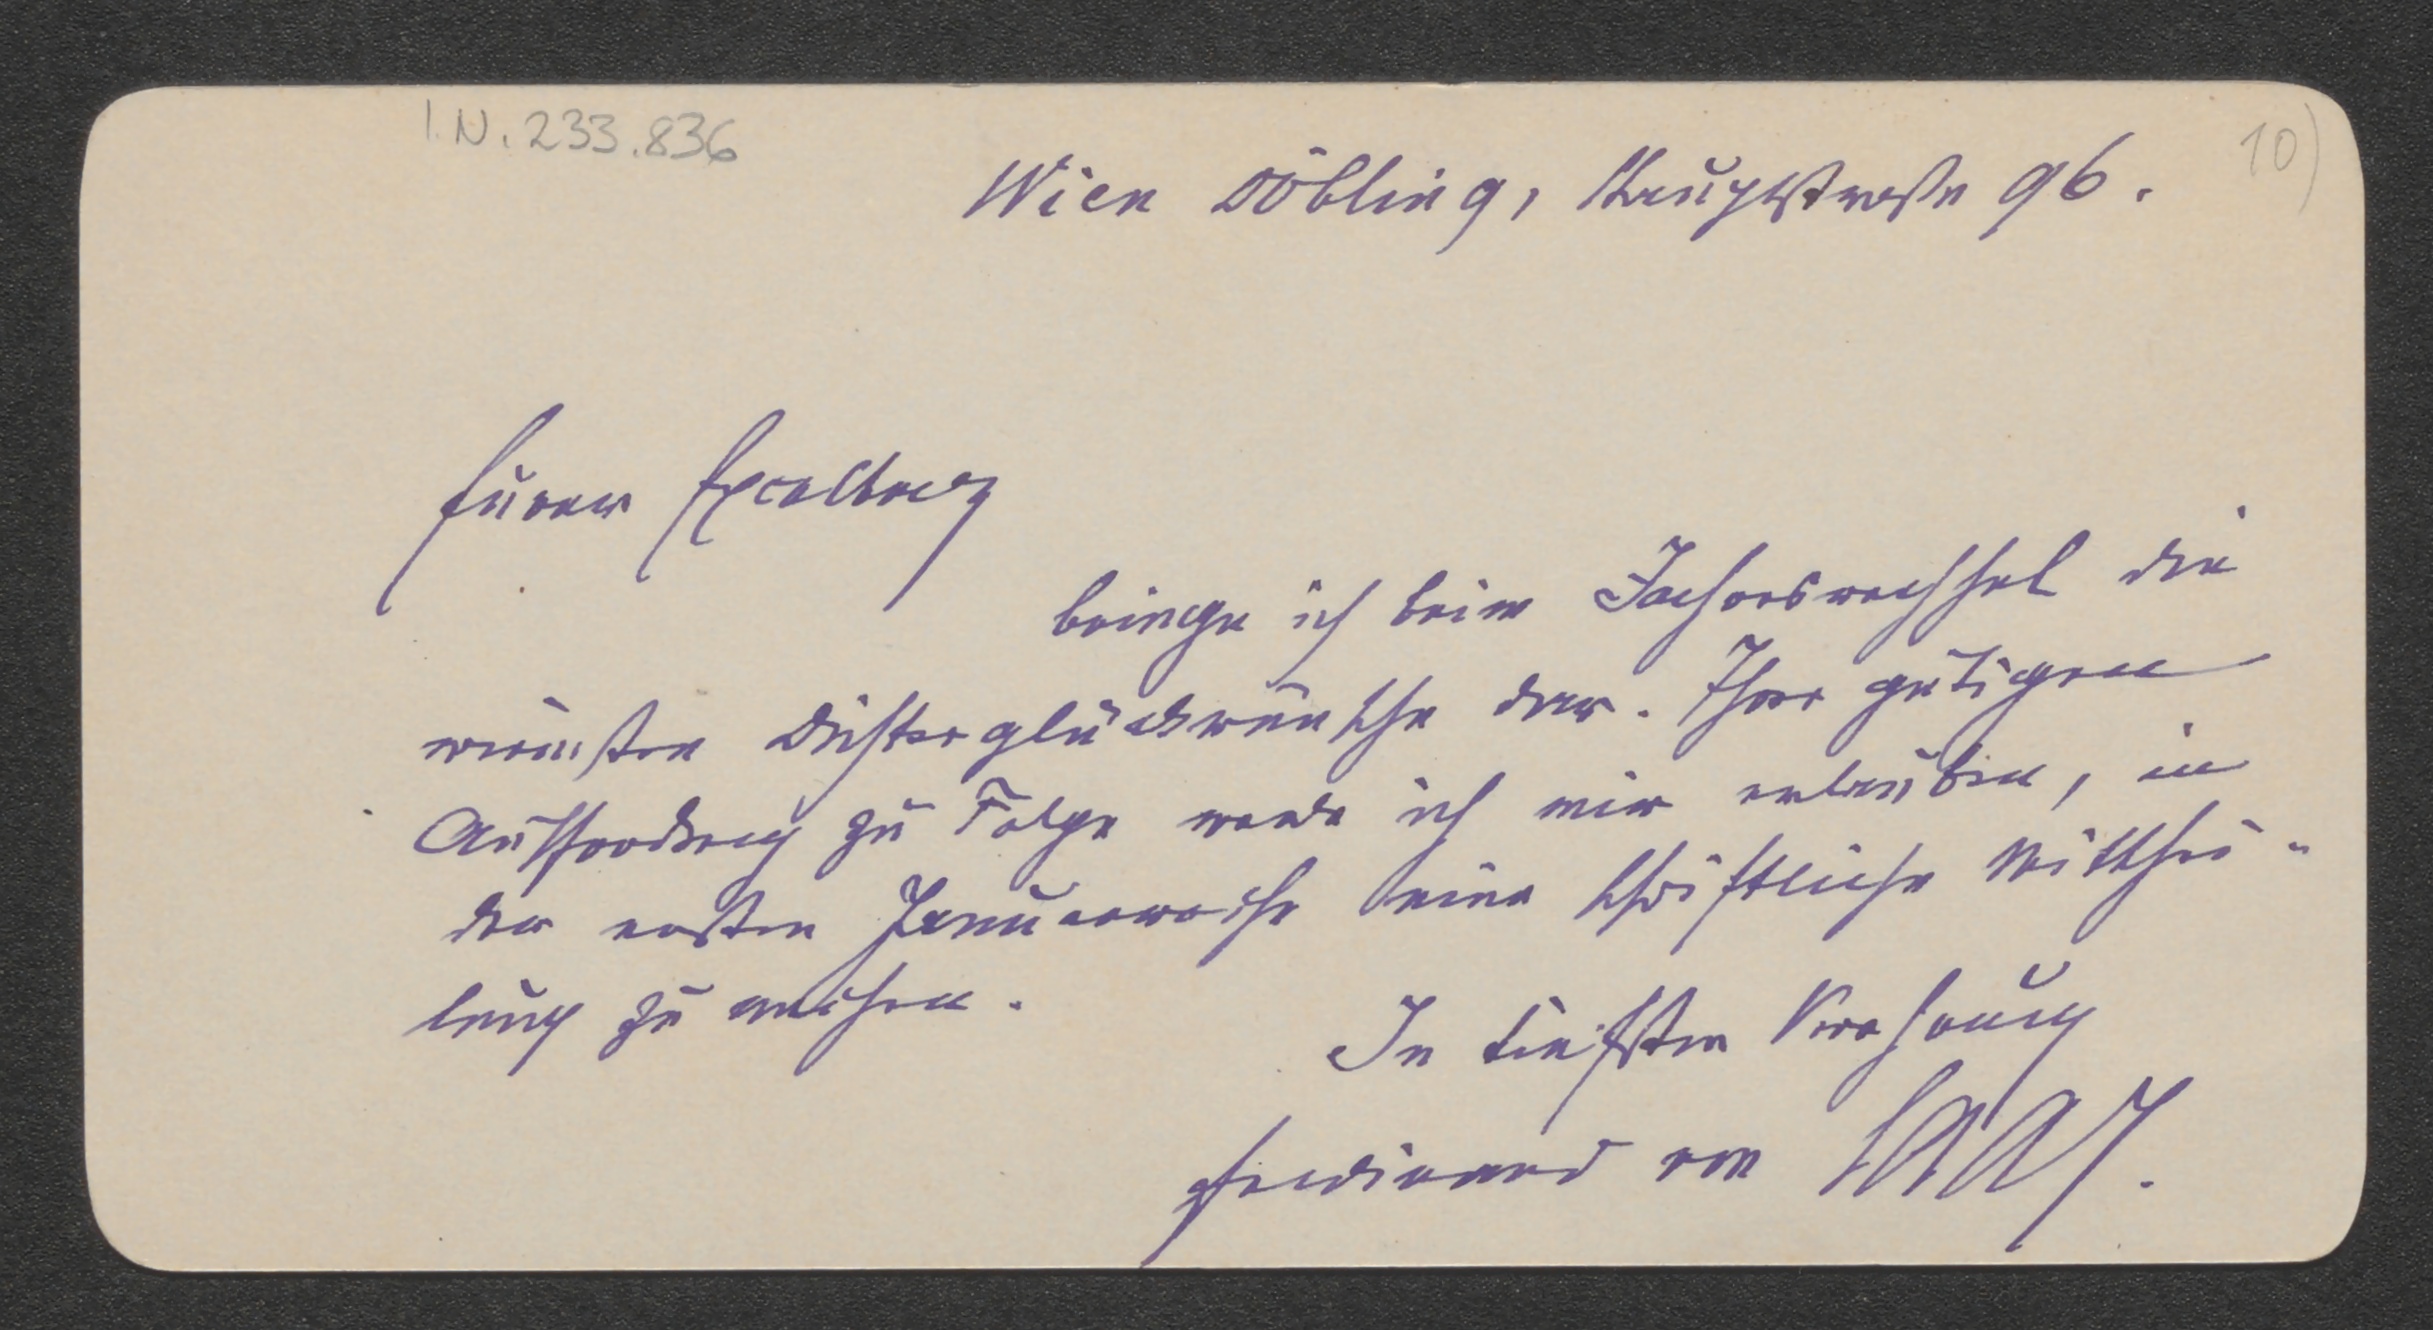 I.N. 233.836
10)
Wien Döbling, Hauptstraße 96.
Eurer Excellenz
bringe ich beim Jahreswechsel die
wärmsten Dichterglückwünsche dar. Ihrer gütigen
Aufforderung zu Folge werde ich mir erlauben, in
der ersten Januarwoche eine schriftliche Mitthei-
lung zu machen.
In tiefster Verehrung
Ferdinand von Saar.